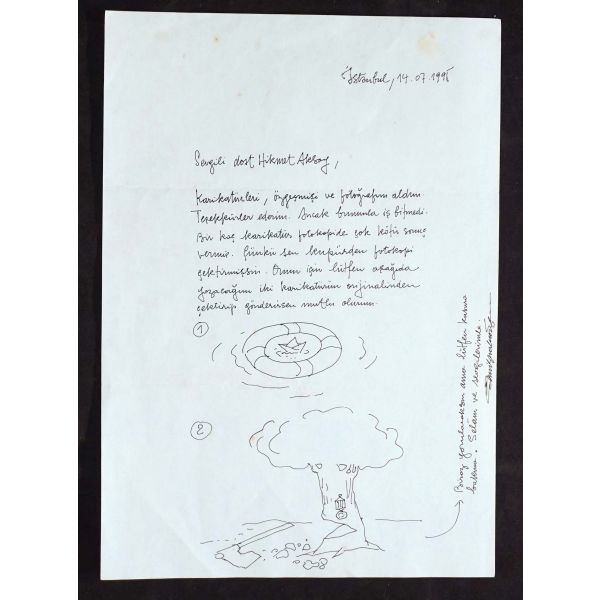 İstanbul, 14.07.1995
Sevgili dost Hikmet Aksoy,
Karikatürleri, özgeçmişi ve fotoğrafını aldım.
Teşekkürler ederim. Ancak bununla iş bitmedi.
Bir kaç karikatür fotokopide çok kötü sonuç
vermiş. Çünkü sen kupürden fotokopi
çektirmişsin. Onun için lütfen aşağıda
yazacağım iki karikatürün orijinalinden
çektirip gönderirsen mutlu olurum.
1
2
Biraz yorulacaksın ama lütfen kusura
bakma. Selâm ve sevgilerimle.